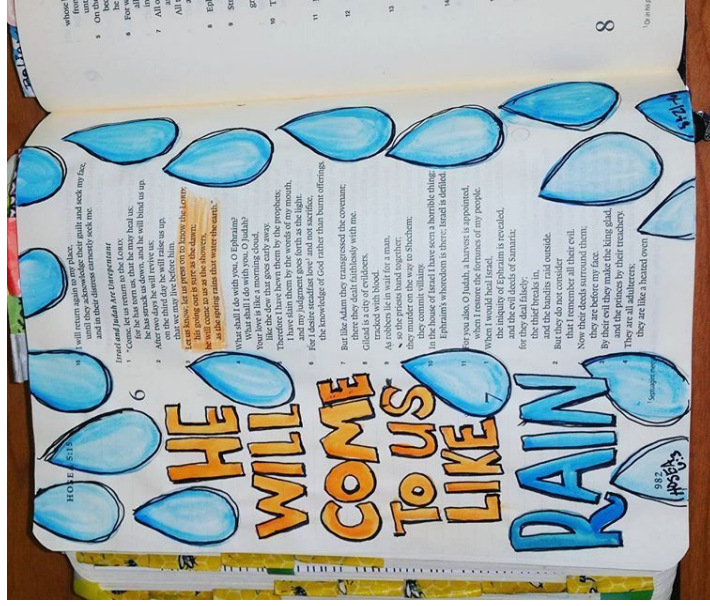 HOSEA 5:15
15 I will return again to my place,
until they acknowledge their guilt and seek my face,
and in their distress earnestly seek me.
Israel and Judah Are Unrepentant
6
1 "Come, let us return to the LORD;
for he has torn us, that he may heal us;
he has struck us down, and he will bind us up.
2 After two days he will revive us;
on the third day he will raise us up,
that we may live before him.
Let us know; let us press on to know the LORD;
his going out is sure as the dawn;
he will come to us as the showers,
as the spring rains that water the earth."
What shall I do with you, O Ephraim?
What shall I do with you, O Judah?
Your love is like a morning cloud,
like the dew that goes early away.
Therefore I have hewn them by the prophets;
I have slain them by the words of my mouth,
and my judgment goes forth as the light.
6 For I desire steadfast love and not sacrifice,
the knowledge of God rather than burnt offerings.
7 But like Adam they transgressed the covenant;
there they dealt faithlessly with me.
8 Gilead is a city of evildoers,
tracked with blood.
9 As robbers lie in wait for a man,
so the priests band together;
they murder on the way to Shechem;
they commit villainy.
10 In the house of Israel I have seen a horrible thing;
Ephraim's whoredom is there; Israel is defiled.
11 For you also, O Judah, a harvest is appointed,
when I restore the fortunes of my people.
7
1 When I would heal Israel,
the iniquity of Ephraim is revealed,
and the evil deeds of Samaria;
for they deal falsely;
the thief breaks in,
and the bandits raid outside.
2 But they do not consider
that I remember all their evil.
Now their deeds surround them;
they are before my face.
By their evil they make the king glad,
and the princes by their treachery.
4 They are all adulterers;
they are like a heated oven
982
HE
WILL
COME
TO US
LIKE
RAIN
whose
5 On
6 For
7 All
8
9
10
11
12
13
14
8